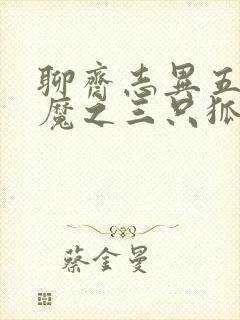 聊齋志異五
魔之三只狐
蔡金曼